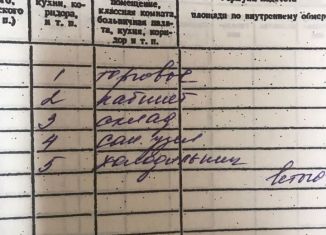 кухни, ко-
ридора,
и т. п.
помещение,
классная комната,
больничная пала-
та, кухня, кори-
дор и т. п.
площади по внутреннему обмер
ского
п.)
1 торговое
2 кабинет
3 склад
4 сан. узел
5 холодильник
Итого